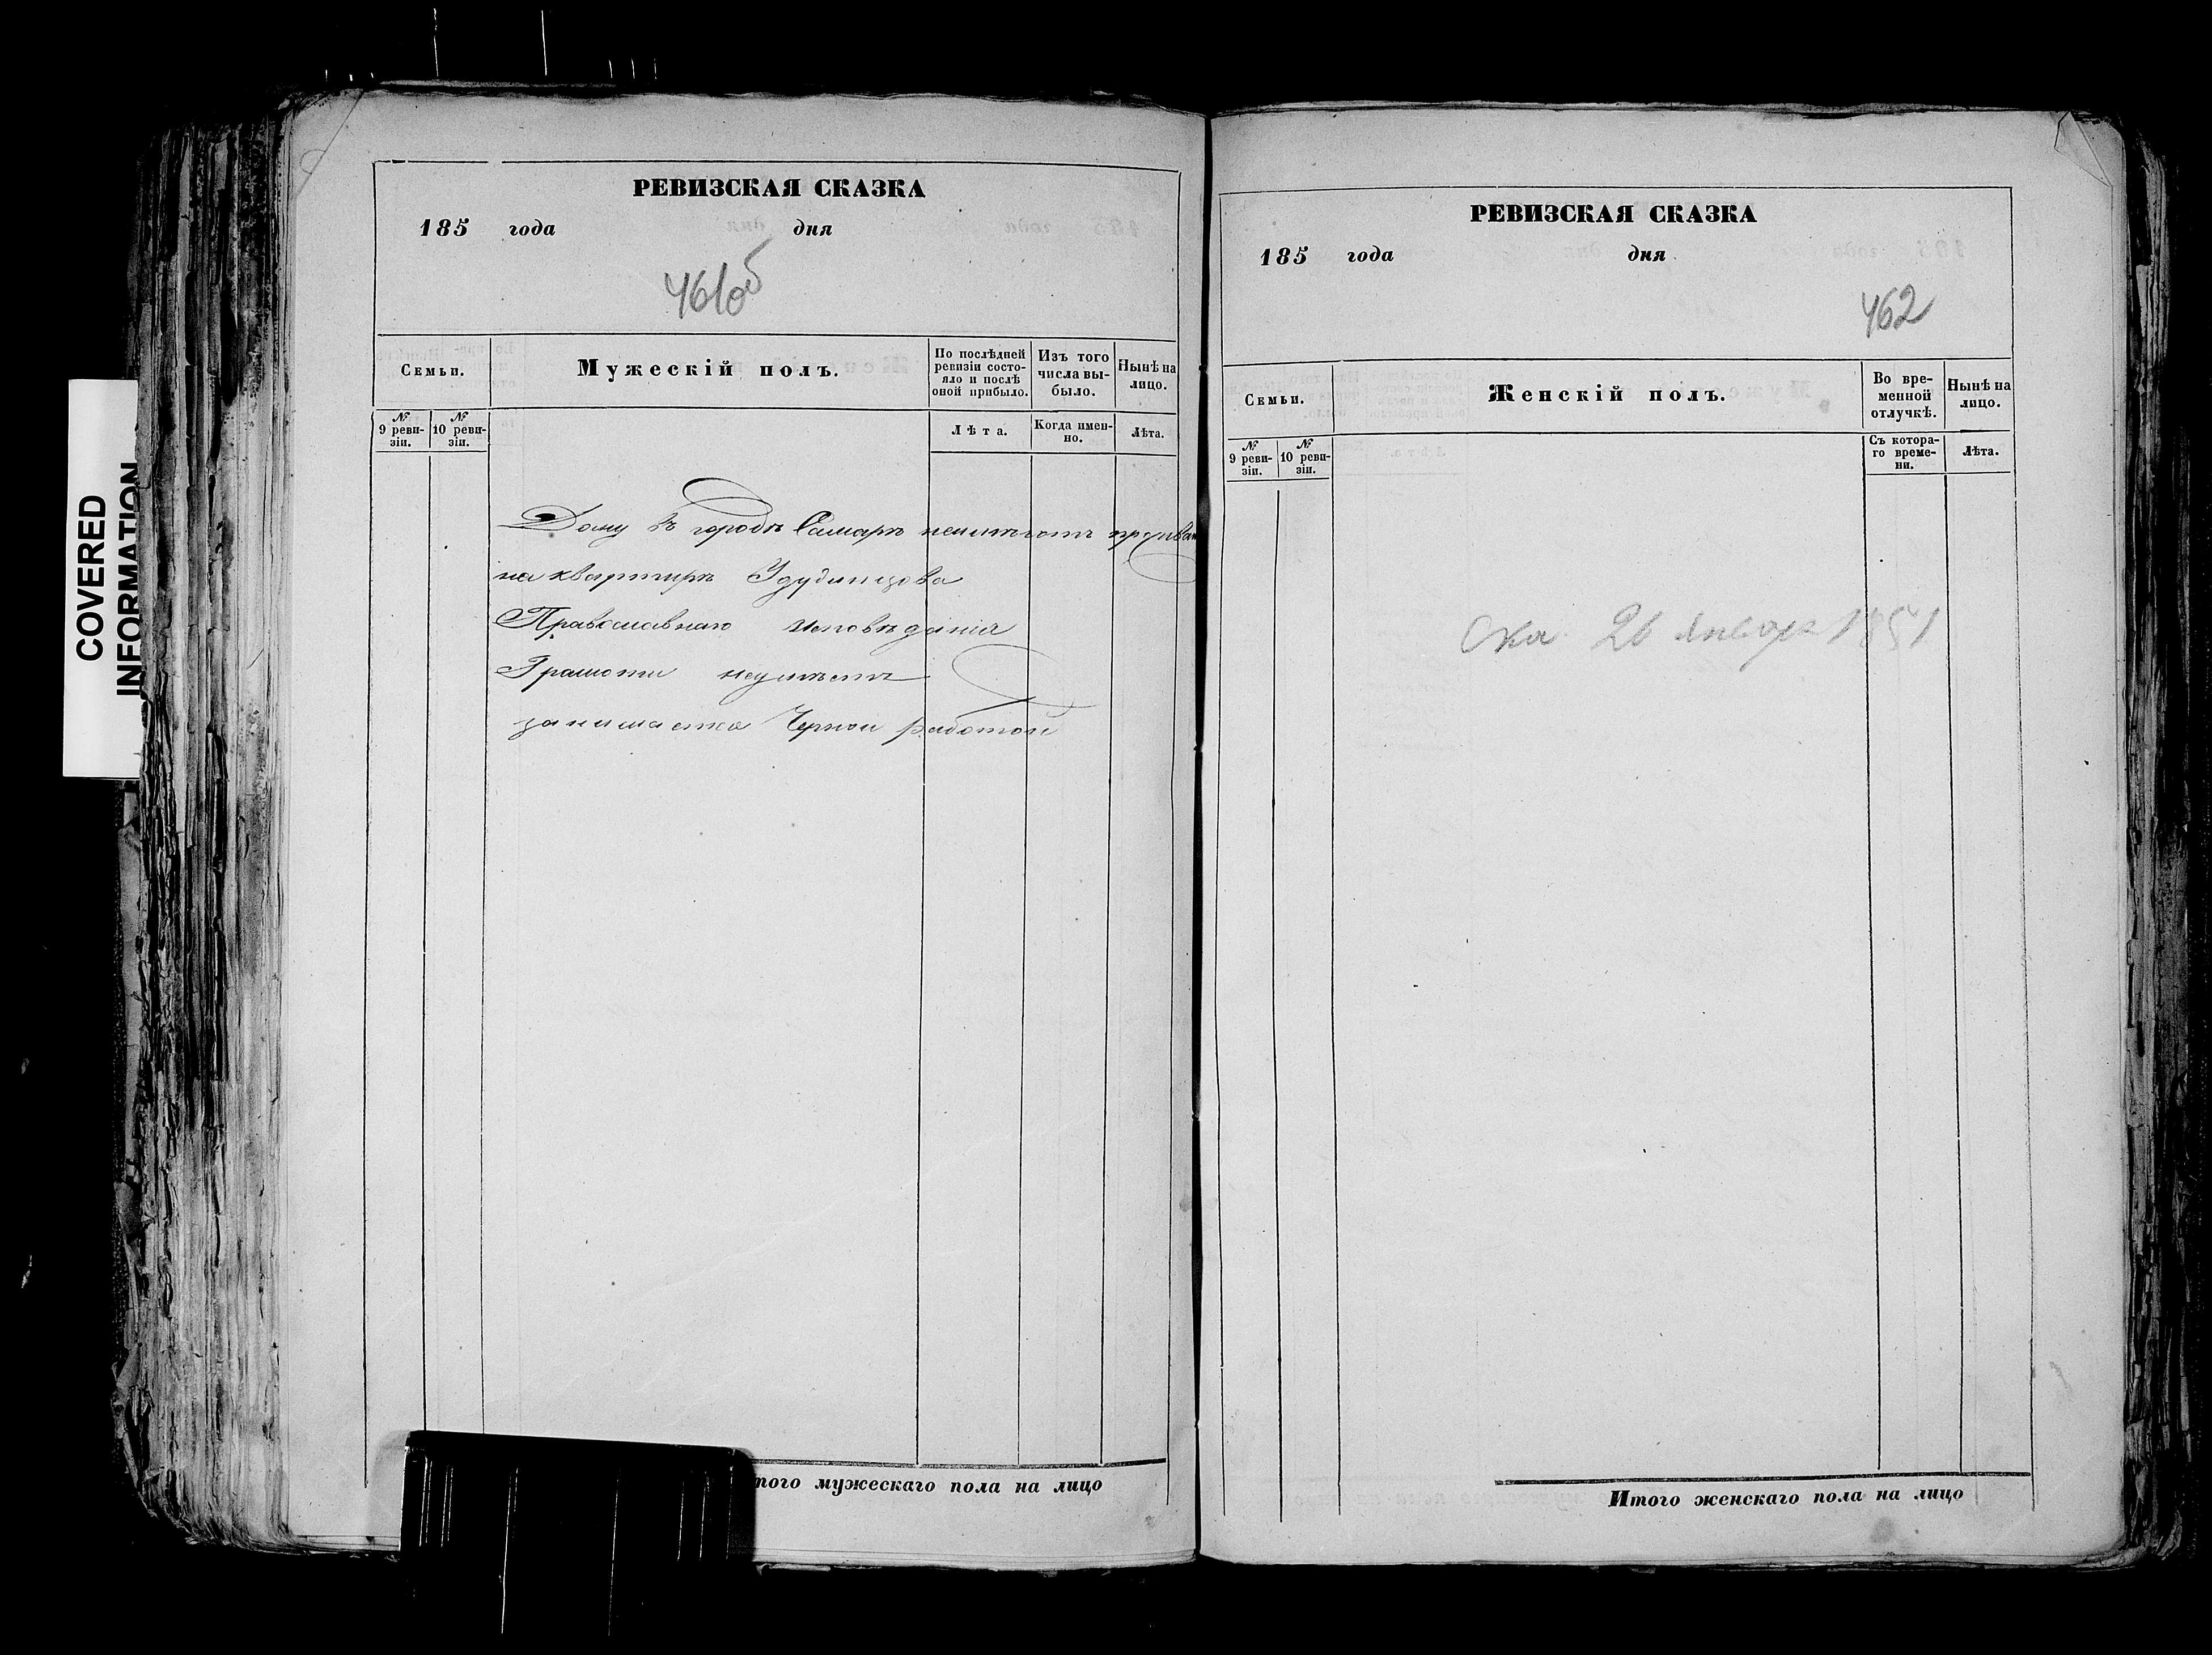 COVERED
INFORMATION
РЕВИЗСКАЯ СКАЗКА
185 года дня
461об
Семьи.
Мужескій полъ.
По послѣдней ревизіи состояло и послѣ оной прибыло.
Изъ того числа выбыло.
Нынѣ на лицо.
№ 9 ревизіи.
№ 10 ревизіи.
Лѣта.
Когда именно.
Лѣта.
Дому въ городѣ Самарѣ неимѣютъ
на квартирѣ
Православнаго исповѣданія
Грамоти неумѣетъ
занимаетса Черной работой
того мужескаго пола на лицо
РЕВИЗСКАЯ СКАЗКА
185 года дня
462
Семьи.
Женскій полъ.
Во временной отлучкѣ.
Нынѣ на лицо.
№ 9 ревизіи.
№ 10 ревизіи.
Съ котораго времени.
Лѣта.
Ска 26 Января 1851
Итого женскаго пола на лицо